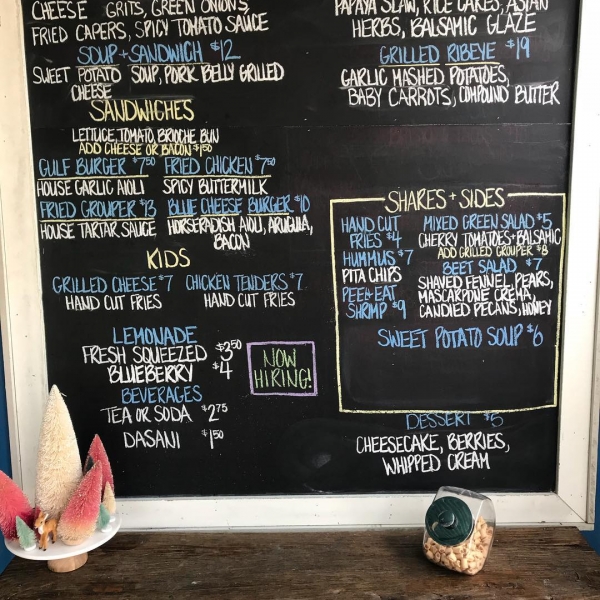 CHEESE GRITS, GREEN ONIONS,
FRIED CAPERS, SPICY TOMATO SAUCE
SOUP + SANDWICH $12
SWEET POTATO SOUP, PORK BELLY GRILLED
CHEESE
SANDWICHES
LETTUCE, TOMATO, BRIOCHE BUN
ADD CHEESE OR BACON $1.50
GULF BURGER $7.50 FRIED CHICKEN $7.50
HOUSE GARLIC AIOLI SPICY BUTTERMILK
FRIED GROUPER $13 BLUE CHEESE BURGER $10
HOUSE TARTAR SAUCE HORSERADISH AIOLI, ARUGULA,
BACON
KIDS
GRILLED CHEESE $7 CHICKEN TENDERS $7
HAND CUT FRIES HAND CUT FRIES
LEMONADE
FRESH SQUEEZED $3.50
BLUEBERRY $4
BEVERAGES
TEA OR SODA $2.75
DASANI $1.50
NOW
HIRING!
PAPAYA SLAW, RICE CAKES, ASIAN
HERBS, BALSAMIC GLAZE
GRILLED RIBEYE $19
GARLIC MASHED POTATOES,
BABY CARROTS, COMPOUND BUTTER
SHARES + SIDES
HAND CUT
FRIES $4
HUMMUS $7
PITA CHIPS
PEEL + EAT
SHRIMP $9
MIXED GREEN SALAD $5
CHERRY TOMATOES + BALSAMIC
ADD GRILLED GROUPER $8
BEET SALAD $7
SHAVED FENNEL, PEARS,
MASCARPONE CREMA,
CANDIED PECANS, HONEY
SWEET POTATO SOUP $6
DESSERT $5
CHEESECAKE, BERRIES,
WHIPPED CREAM